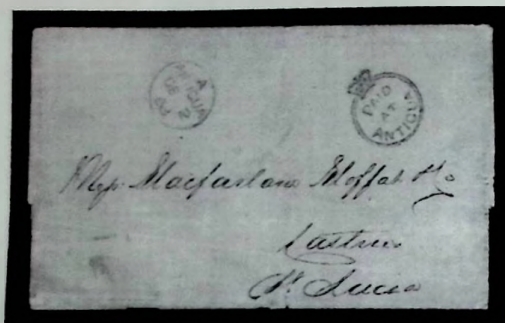 A
ANTIGUA
DE 2
PAID
AT
ANTIGUA
Messrs Macfarlane Moffat & Co
Castries
St Lucia